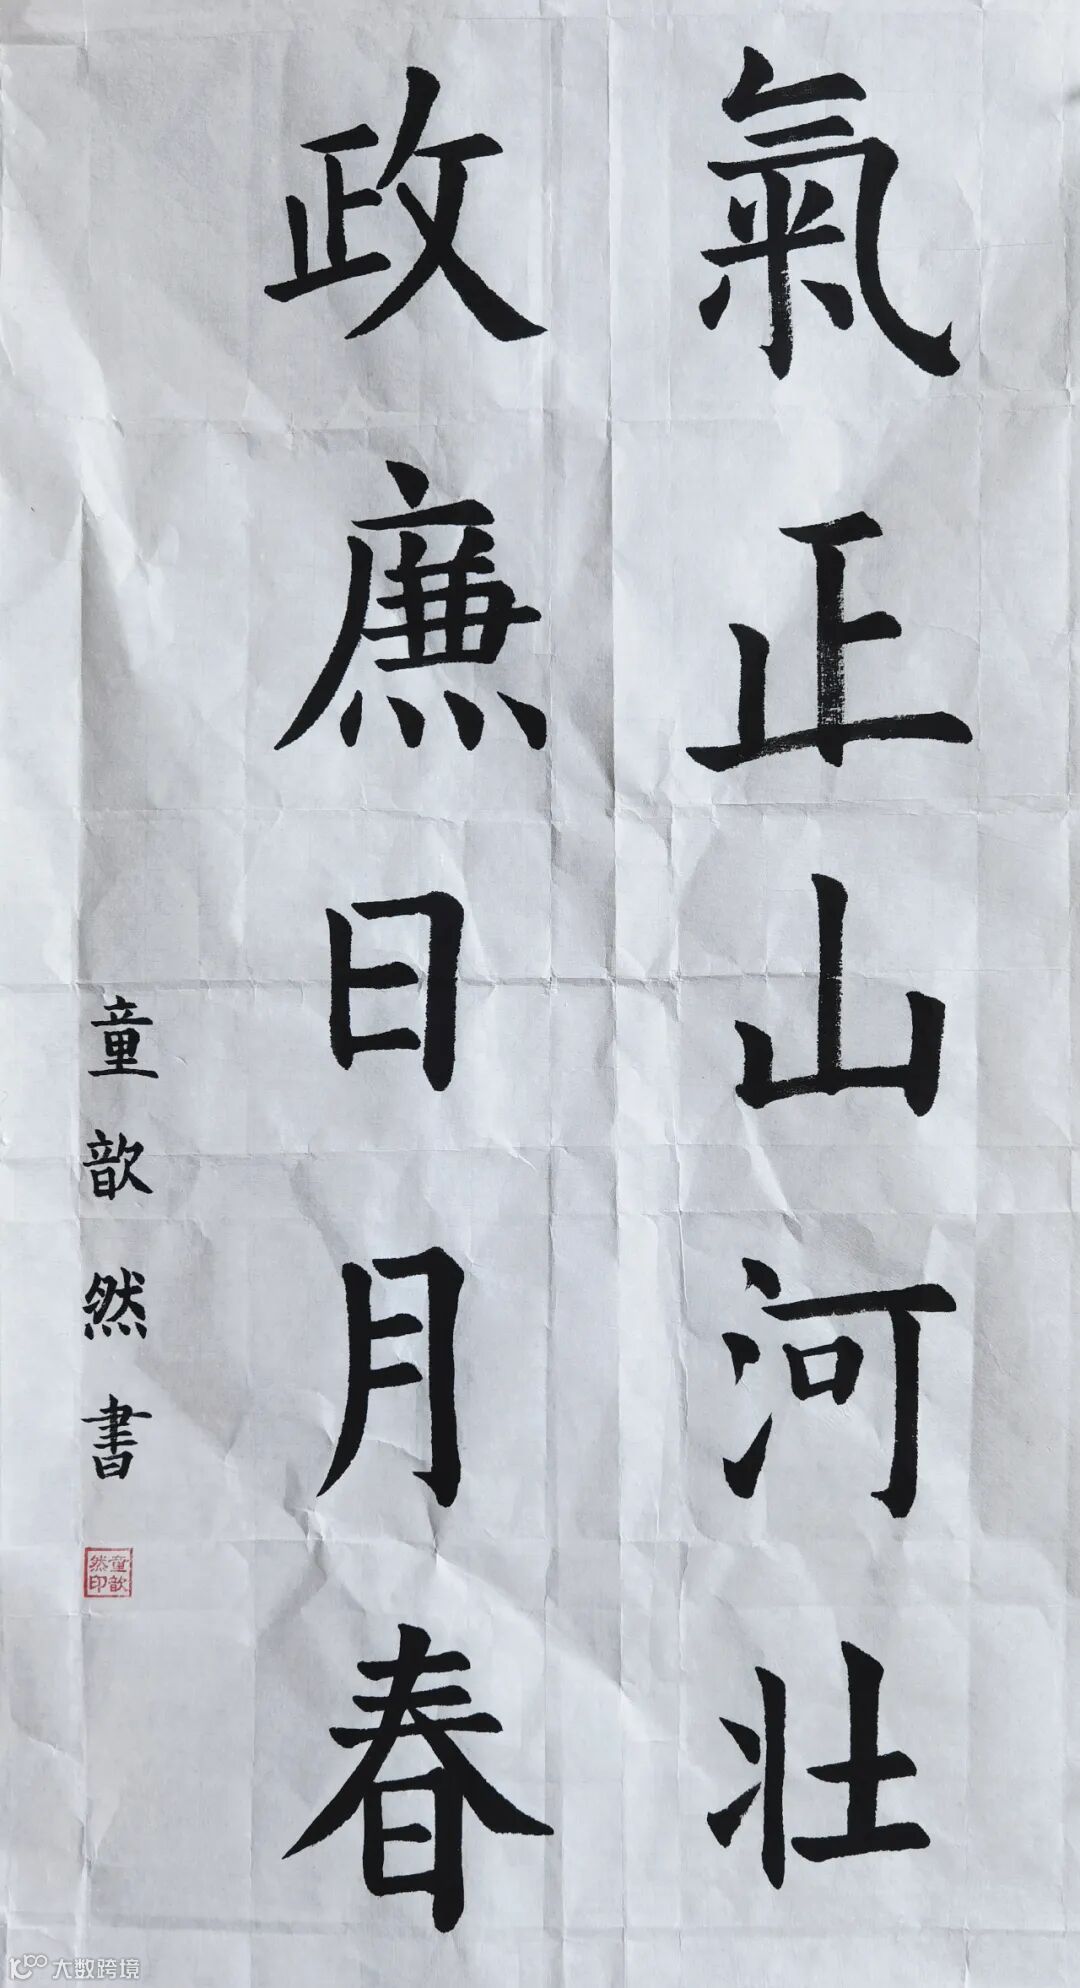 氣正山河壯
政廉日月春
童歆然書
童歆然印
大数跨境